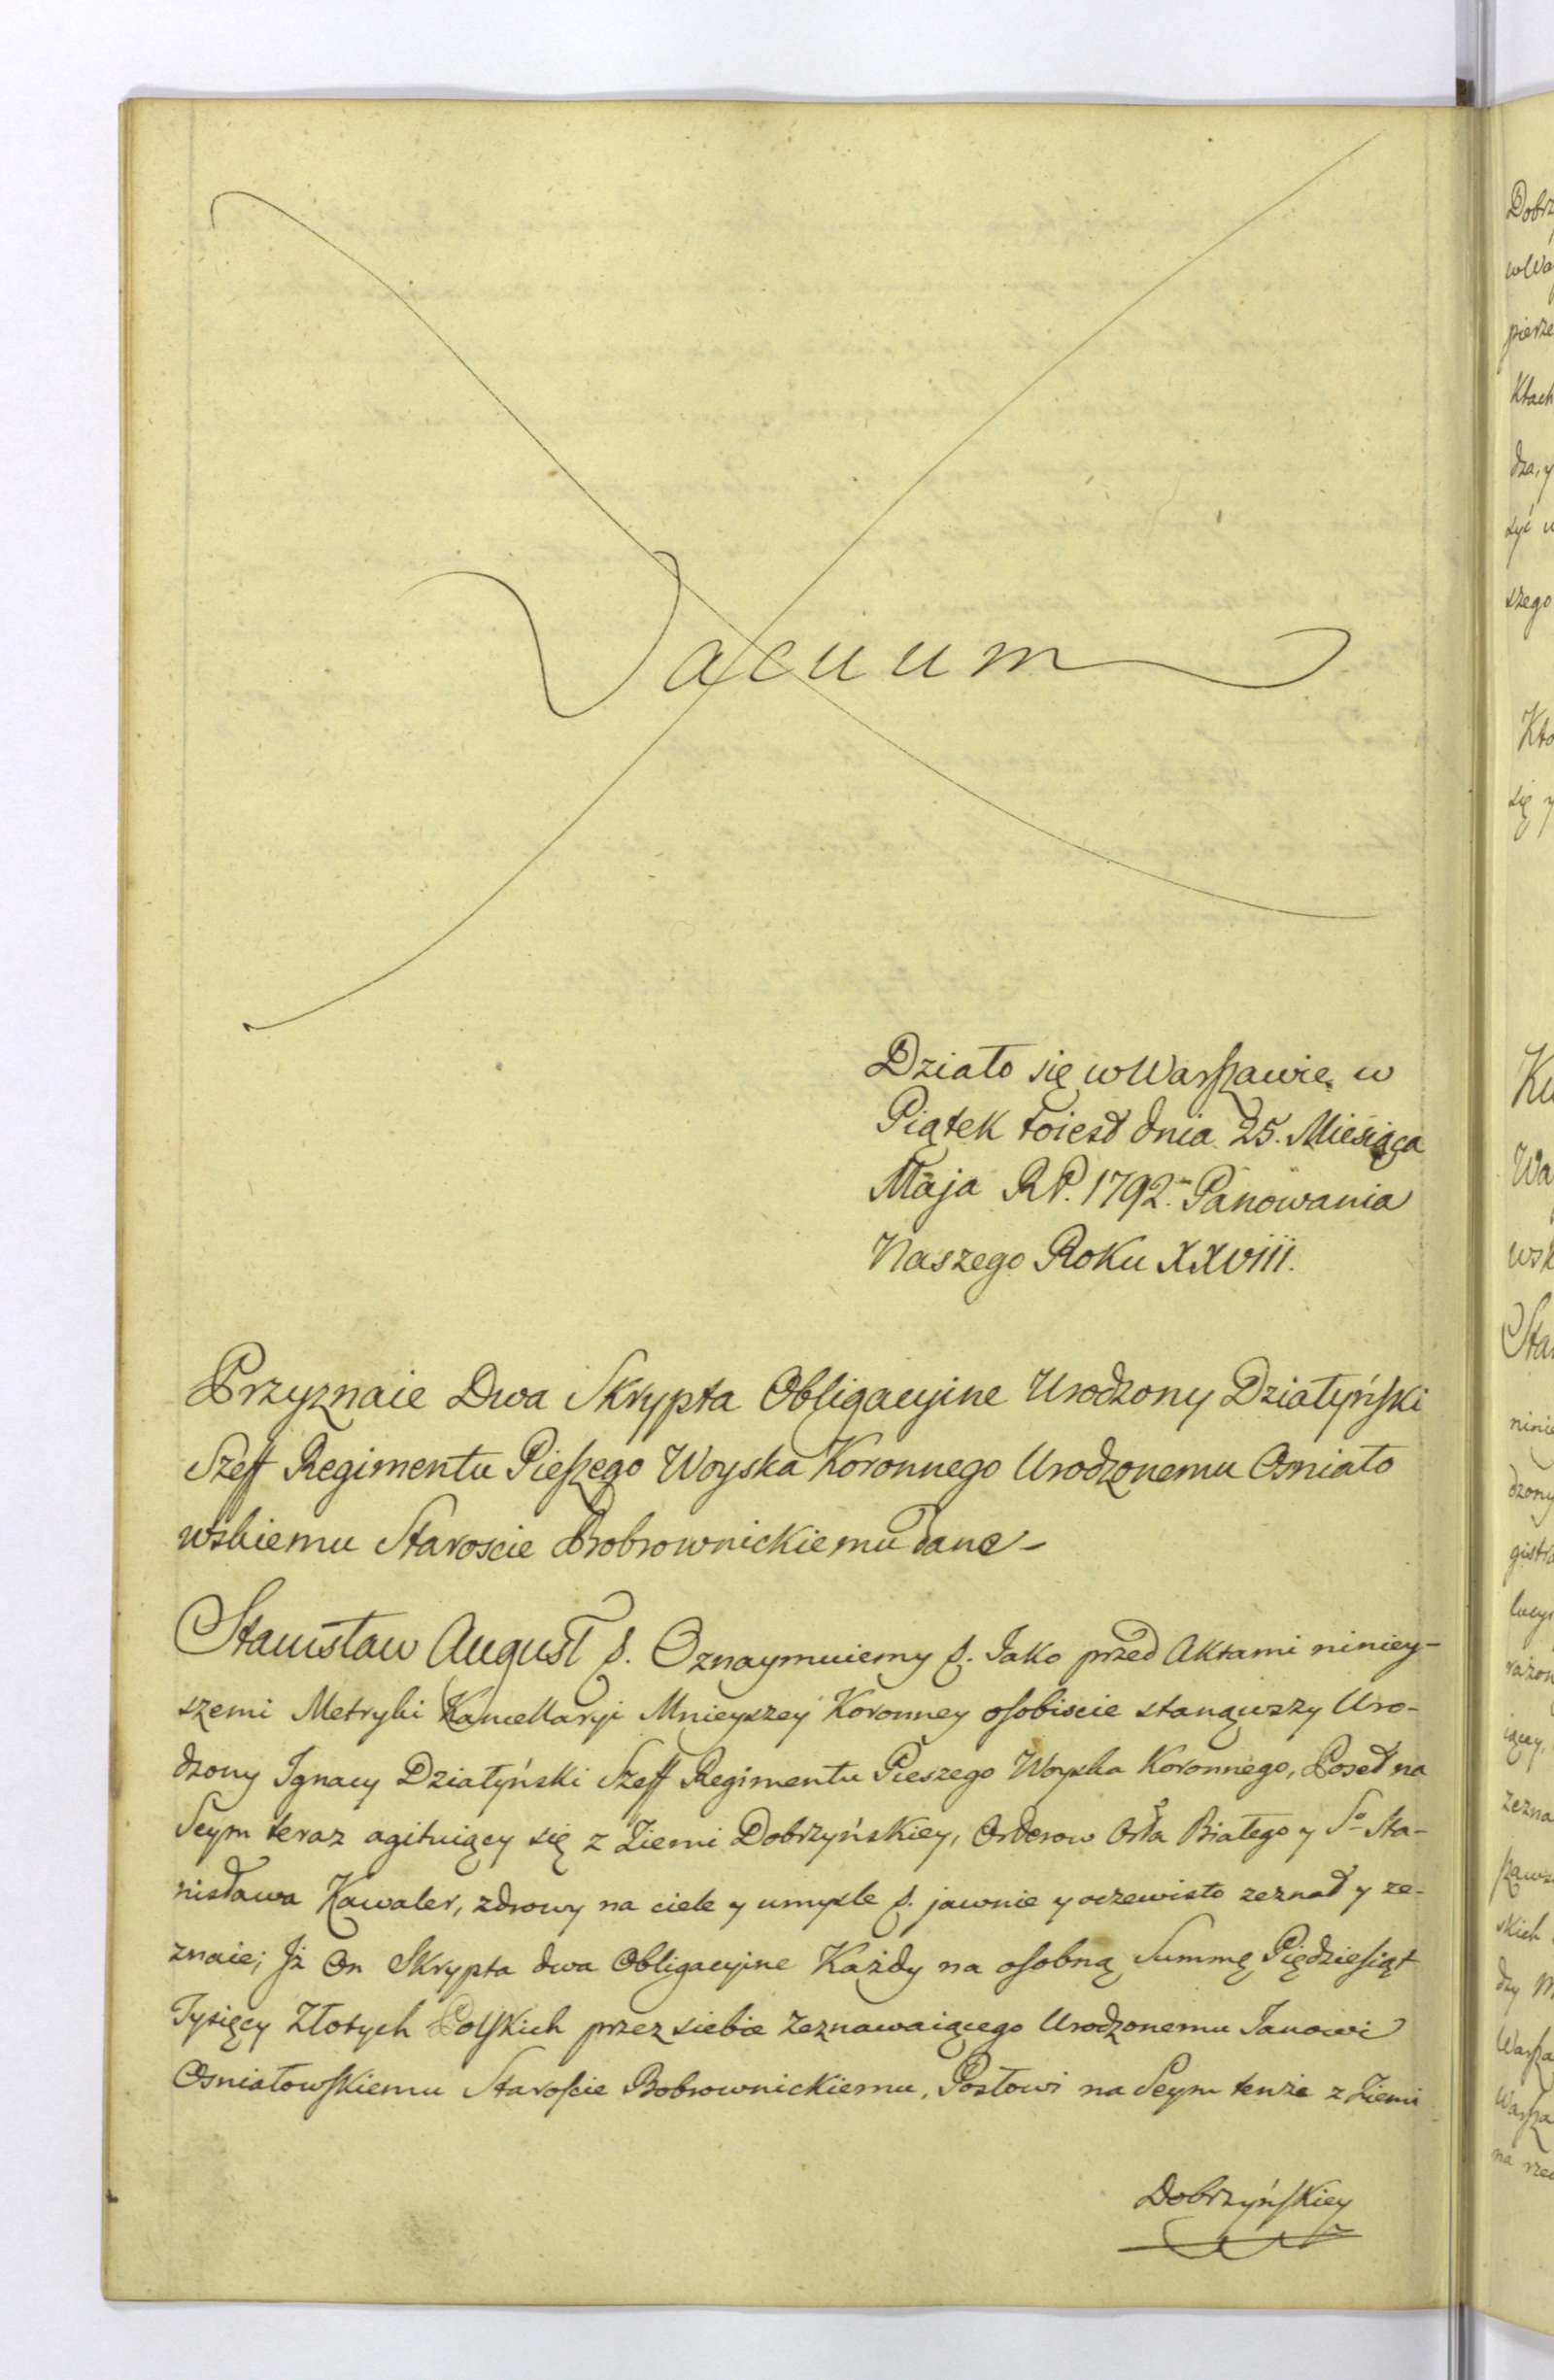 Vacuum
Działo się w Warszawie w
Piątek to iest dnia 25. Miesiąca
Maja RP. 1792. Panowania
Naszego Roku XXVIII.
Przyznaie Dwa Skrypta Obligacyine Urodzony Działyński
Szeff Regimentu Pieszego Woyska Koronnego Urodzonemu Osniało
wskiemu Staroscie Bobrownickiemu dane
Stanisław August &. Oznaymuiemy &. Jako przed Aktami niniey-
szemi Metryki Kancellaryi Mnieyszey Koronney osobiscie stanąwszy Uro-
dzony Ignacy Działyński Szeff Regimentu Pieszego Woyska Koronnego, Poseł na
Seym teraz agituiący się z Ziemi Dobrzyńskiey, Orderow Orła Białego y So Sta-
nisława Kawaler, zdrowy na ciele y umysle &. jawnie y oczewisto zeznał y ze-
znaie; Iż On Skrypta dwa Obligacyine Każdy na osobną Summę Piędziesiąt
Tysięcy Złotych Polskich przez siebie Zeznawaiącego Urodzonemu Janowi
Osniałowskiemu Staroscie Bobrownickiemu, Posłowi na Seym tenże z Ziemi
Dobrzyńskiey